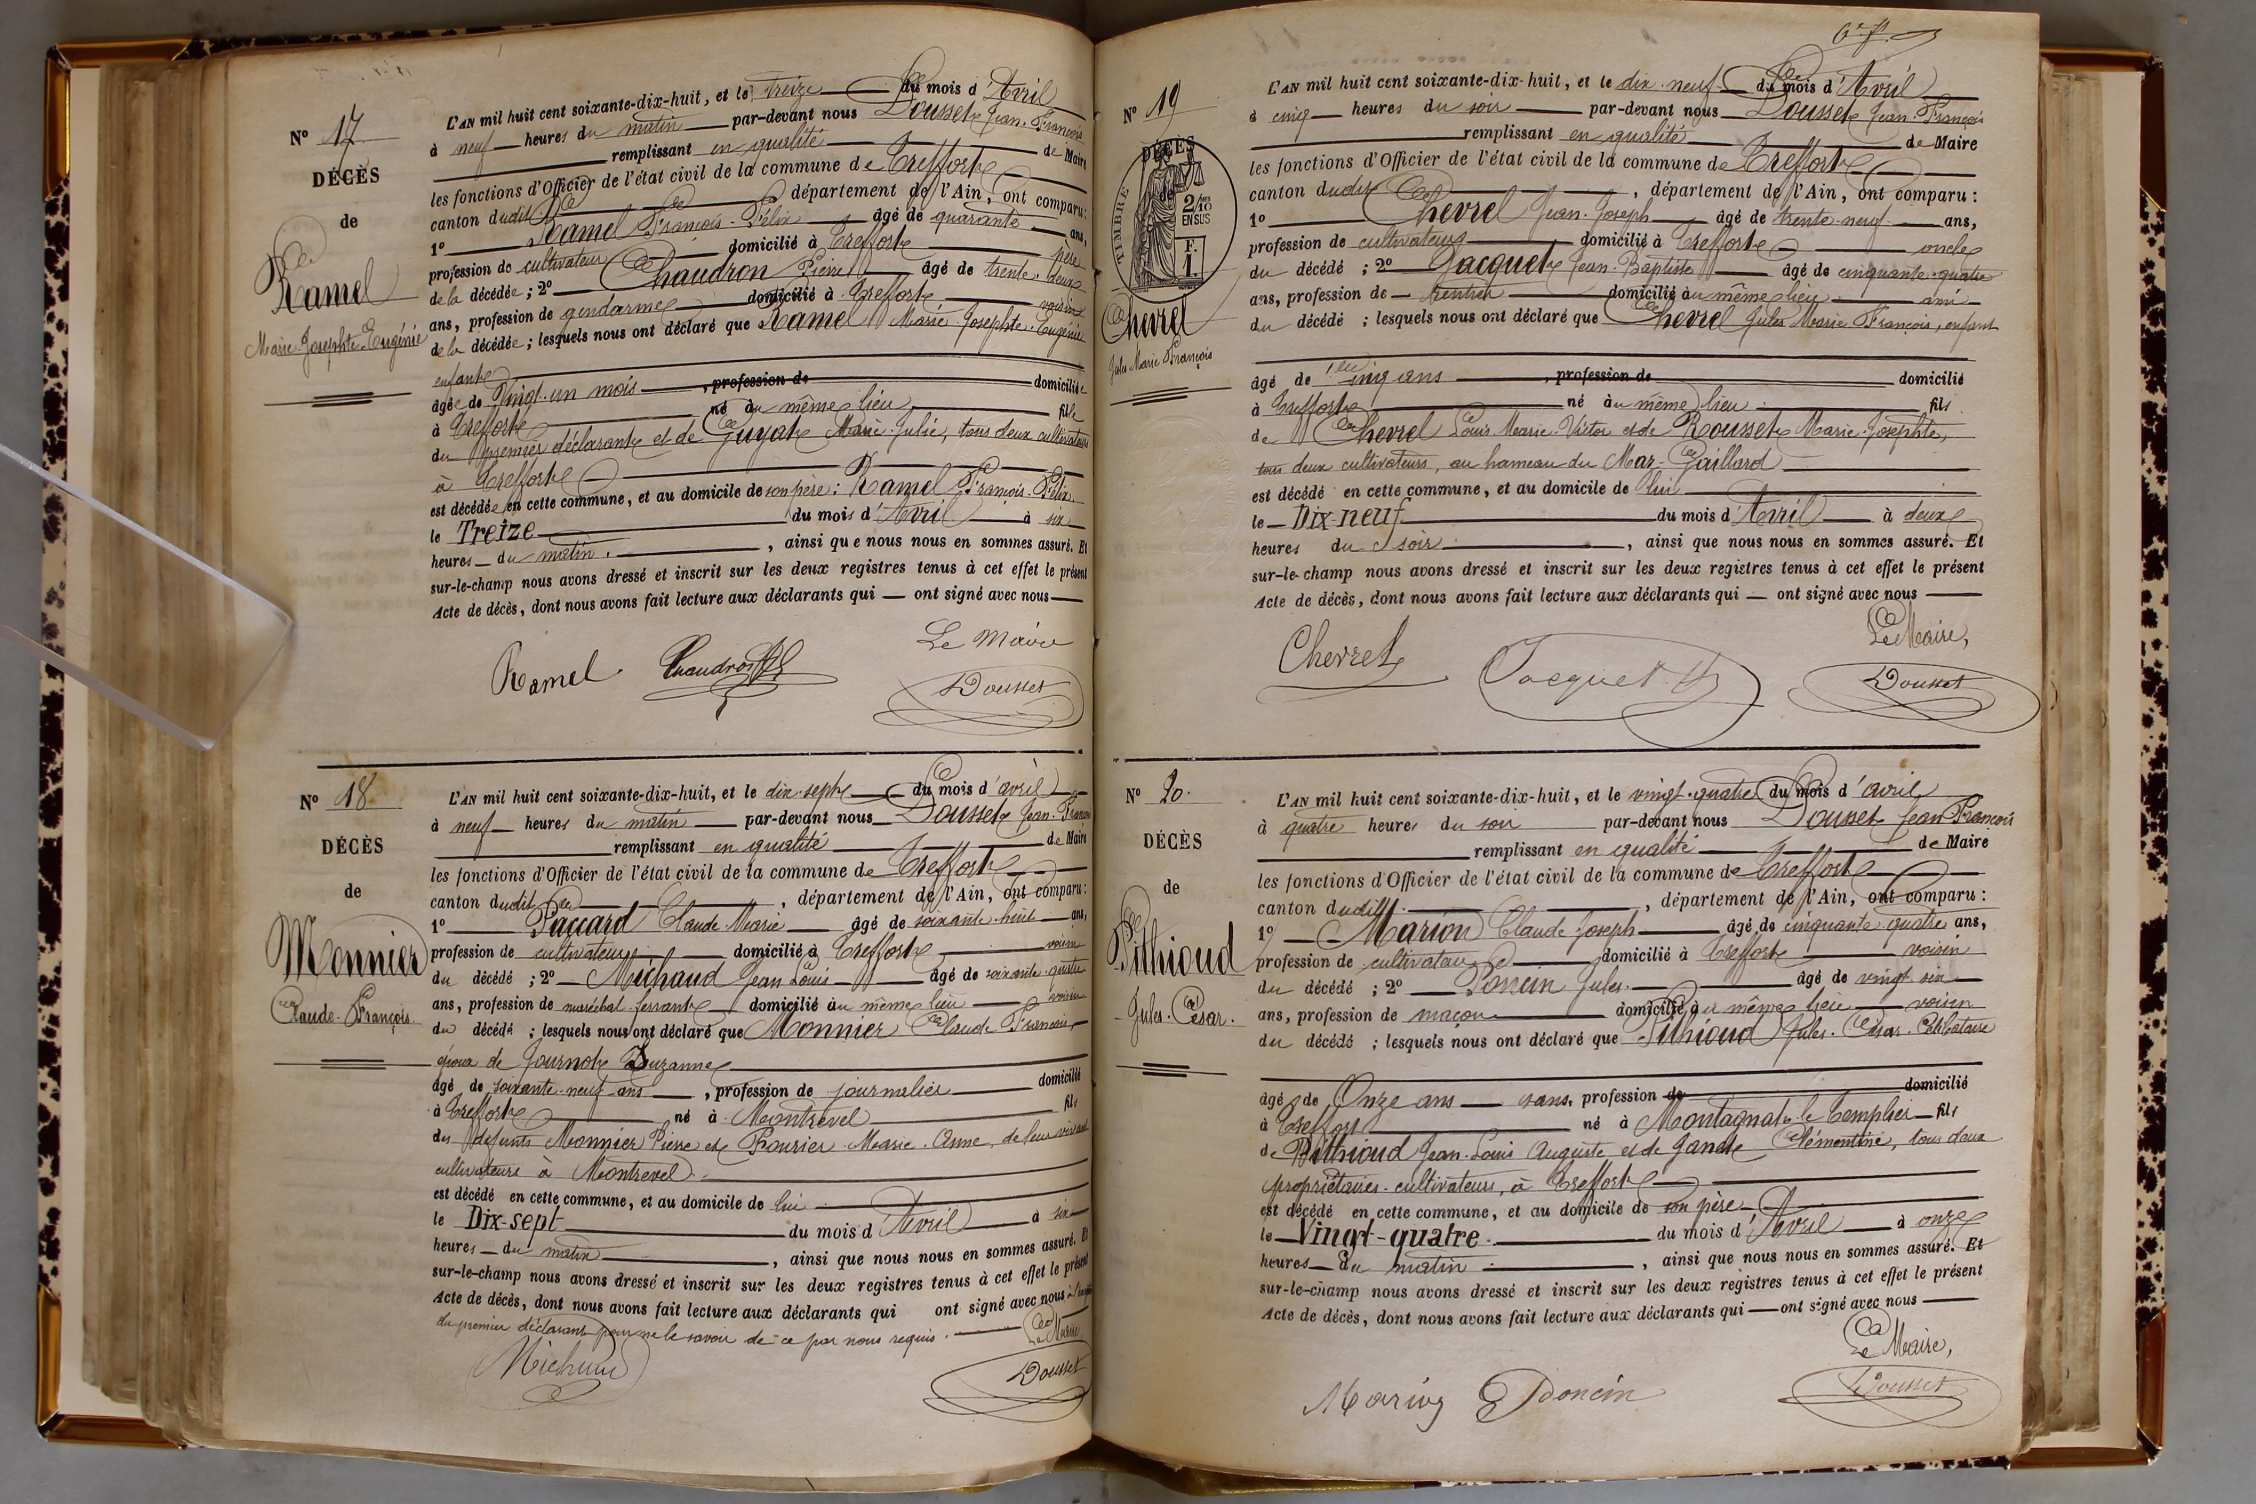 Nº 17
DÉCÈS
de
Ramel
Marie Josephte Eugénie
L'AN mil huit cent soixante-dix-huit, et le treize du mois d'Avril
à neuf heures du matin par-devant nous Dousset Jean-François
remplissant en qualité de Maire
les fonctions d'Officier de l'état civil de la commune de Treffort
canton dudit, département de l'Ain, ont comparu:
1º Ramel François-Félix âgé de quarante ans,
profession de cultivateur domicilié à Treffort père
de la décédée; 2º Chaudron Pierre âgé de trente-deux
ans, profession de gendarme domicilié à Treffort voisin
de la décédée; lesquels nous ont déclaré que Ramel Marie Josephte Eugénie
enfant
âgée de Vingt-un mois, profession de domiciliée
à Treffort né au même lieu fille
du premier déclarant et de Guyat Marie-Julie, tous deux cultivateurs
à Treffort
est décédée en cette commune, et au domicile de son père: Ramel François-Félix
le Treize du mois d'Avril à six
heures du matin, ainsi que nous nous en sommes assuré. Et
sur-le-champ nous avons dressé et inscrit sur les deux registres tenus à cet effet le présent
Acte de décès, dont nous avons fait lecture aux déclarants qui — ont signé avec nous —
Le Maire
Ramel Chaudron Dousset
Nº 18
DÉCÈS
de
Monnier
Claude-François
L'AN mil huit cent soixante-dix-huit, et le dix-sept du mois d'avril
à neuf heures du matin par-devant nous Dousset Jean-François
remplissant en qualité de Maire
les fonctions d'Officier de l'état civil de la commune de Treffort
canton dudit, département de l'Ain, ont comparu:
1º Paccard Claude Marie âgé de soixante-huit ans,
profession de cultivateur domicilié à Treffort voisin
du décédé; 2º Michaud Jean Louis âgé de soixante-quatre
ans, profession de maréchal-ferrant domicilié au même lieu voisin
du décédé; lesquels nous ont déclaré que Monnier Claude François
époux de Journot Suzanne
âgé de soixante-neuf ans, profession de journalier domicilié
à Treffort né à Montrevel fils
des défunts Monnier Pierre et Pourier Marie-Anne, de leur vivant
cultivateurs à Montrevel
est décédé en cette commune, et au domicile de lui
le Dix-sept du mois d'Avril à six
heures du matin, ainsi que nous nous en sommes assuré. Et
sur-le-champ nous avons dressé et inscrit sur les deux registres tenus à cet effet le présent
Acte de décès, dont nous avons fait lecture aux déclarants qui ont signé avec nous
du premier déclarant pour ne le savoir de ce par nous requis.
Le Maire
Michaud Dousset
Nº 19
DÉCÈS
de
TIMBRE
2/10
EN SUS
F.
1.
Chevrel
Jules Marie François
L'AN mil huit cent soixante-dix-huit, et le dix-neuf du mois d'Avril
à cinq heures du soir par-devant nous Dousset Jean-François
remplissant en qualité de Maire
les fonctions d'Officier de l'état civil de la commune de Treffort
canton dudit, département de l'Ain, ont comparu:
1º Chevrel Jean-Joseph âgé de trente-neuf ans,
profession de cultivateur domicilié à Treffort oncle
du décédé; 2º Jacquet Jean-Baptiste âgé de cinquante-quatre
ans, profession de rentier domicilié au même lieu ami
du décédé; lesquels nous ont déclaré que Chevrel Jules Marie François, enfant
âgé de cinq ans, profession de domicilié
à Treffort né au même lieu fils
de Chevrel Louis Marie-Victor et de Rousset Marie-Josephte,
tous deux cultivateurs, au hameau du Mas-Gaillard
est décédé en cette commune, et au domicile de lui
le Dix-neuf du mois d'Avril à deux
heures du soir, ainsi que nous nous en sommes assuré. Et
sur-le-champ nous avons dressé et inscrit sur les deux registres tenus à cet effet le présent
Acte de décès, dont nous avons fait lecture aux déclarants qui — ont signé avec nous —
Le Maire,
Chevrel Jacquet Dousset
Nº 20
DÉCÈS
de
Pithioud
Jules-César
L'AN mil huit cent soixante-dix-huit, et le vingt-quatre du mois d'avril
à quatre heures du soir par-devant nous Dousset Jean François
remplissant en qualité de Maire
les fonctions d'Officier de l'état civil de la commune de Treffort
canton dudit, département de l'Ain, ont comparu:
1º Marion Claude Joseph âgé de cinquante quatre ans,
profession de cultivateur domicilié à Treffort voisin
du décédé; 2º Poncin Jules âgé de vingt-six
ans, profession de maçon domicilié au même lieu voisin
du décédé; lesquels nous ont déclaré que Pithioud Jules-César. Célibataire
âgé de Onze ans — sans, profession de domicilié
à Treffort né à Montagnat-le-Templier fils
de Pithioud Jean-Louis Auguste et de Gandt Clémentine, tous deux
propriétaires-cultivateurs, à Treffort
est décédé en cette commune, et au domicile de son père
le Vingt-quatre du mois d'Avril à onze
heures du matin, ainsi que nous nous en sommes assuré. Et
sur-le-champ nous avons dressé et inscrit sur les deux registres tenus à cet effet le présent
Acte de décès, dont nous avons fait lecture aux déclarants qui — ont signé avec nous —
Le Maire,
Marion Poncin Dousset